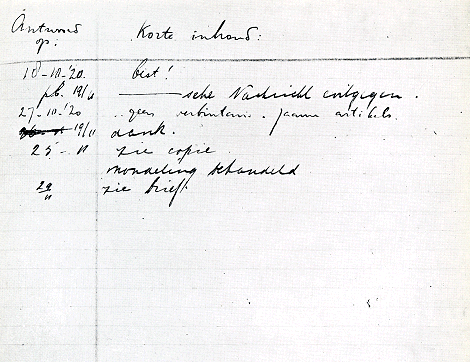 Antwoord op: Korte inhoud:
18-10-'20. best!
p.b. 19/11 sche Nachricht entgegen.
27-10-'20 ..geen verbintenis. Jaarm artikels.
19/11 dank.
25-11 zie copie
mondeling behandeld
29/11 zie brief.